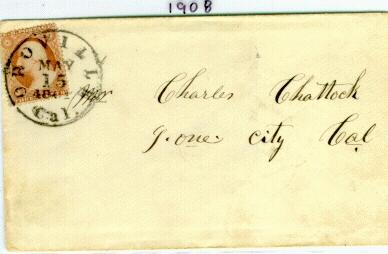 1908
OROVILLE
MAY
15
Cal.
Mr Charles Chattock
Jone City Cal